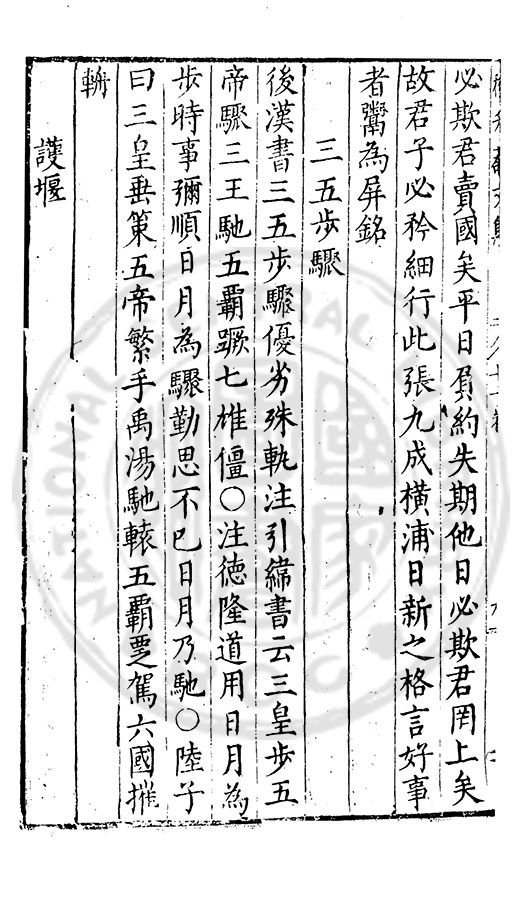 必欺君賣國矣平日負約失期他日必欺君罔上矣
故君子必矜細行此張九成橫浦日新之格言好事
者鬻為屏銘
三五步驟
後漢書三五步驟優劣殊軌注引緯書云三皇步五
帝驟三王馳五霸蹶七雄僵〇注德隆道用日月為
步時事彌順日月為驟勤思不已日月乃馳〇陸子
曰三皇垂策五帝繁手禹湯馳轅五霸覂駕六國摧
輈
護堰